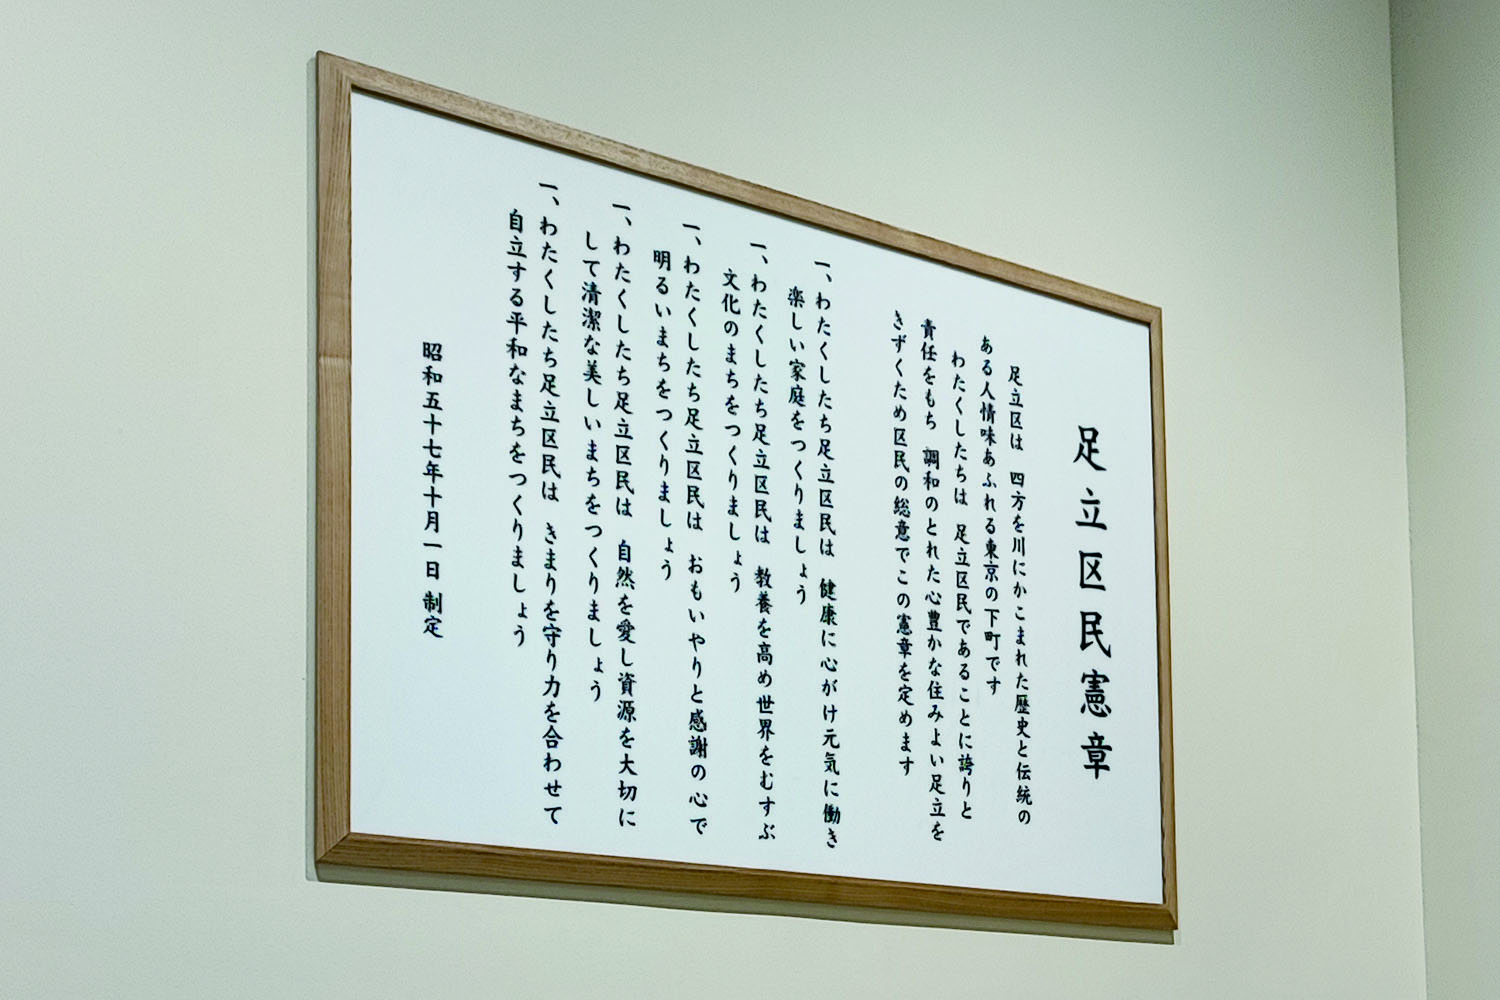 足立区民憲章
足立区は　四方を川にかこまれた歴史と伝統の
ある人情味あふれる東京の下町です
わたくしたちは　足立区民であることに誇りと
責任をもち　調和のとれた心豊かな住みよい足立を
きずくため区民の総意でこの憲章を定めます
一、わたくしたち足立区民は　健康に心がけ元気に働き
楽しい家庭をつくりましょう
一、わたくしたち足立区民は　教養を高め世界をむすぶ
文化のまちをつくりましょう
一、わたくしたち足立区民は　おもいやりと感謝の心で
明るいまちをつくりましょう
一、わたくしたち足立区民は　自然を愛し資源を大切に
して清潔な美しいまちをつくりましょう
一、わたくしたち足立区民は　きまりを守り力を合わせて
自立する平和なまちをつくりましょう
昭和五十七年十月一日 制定